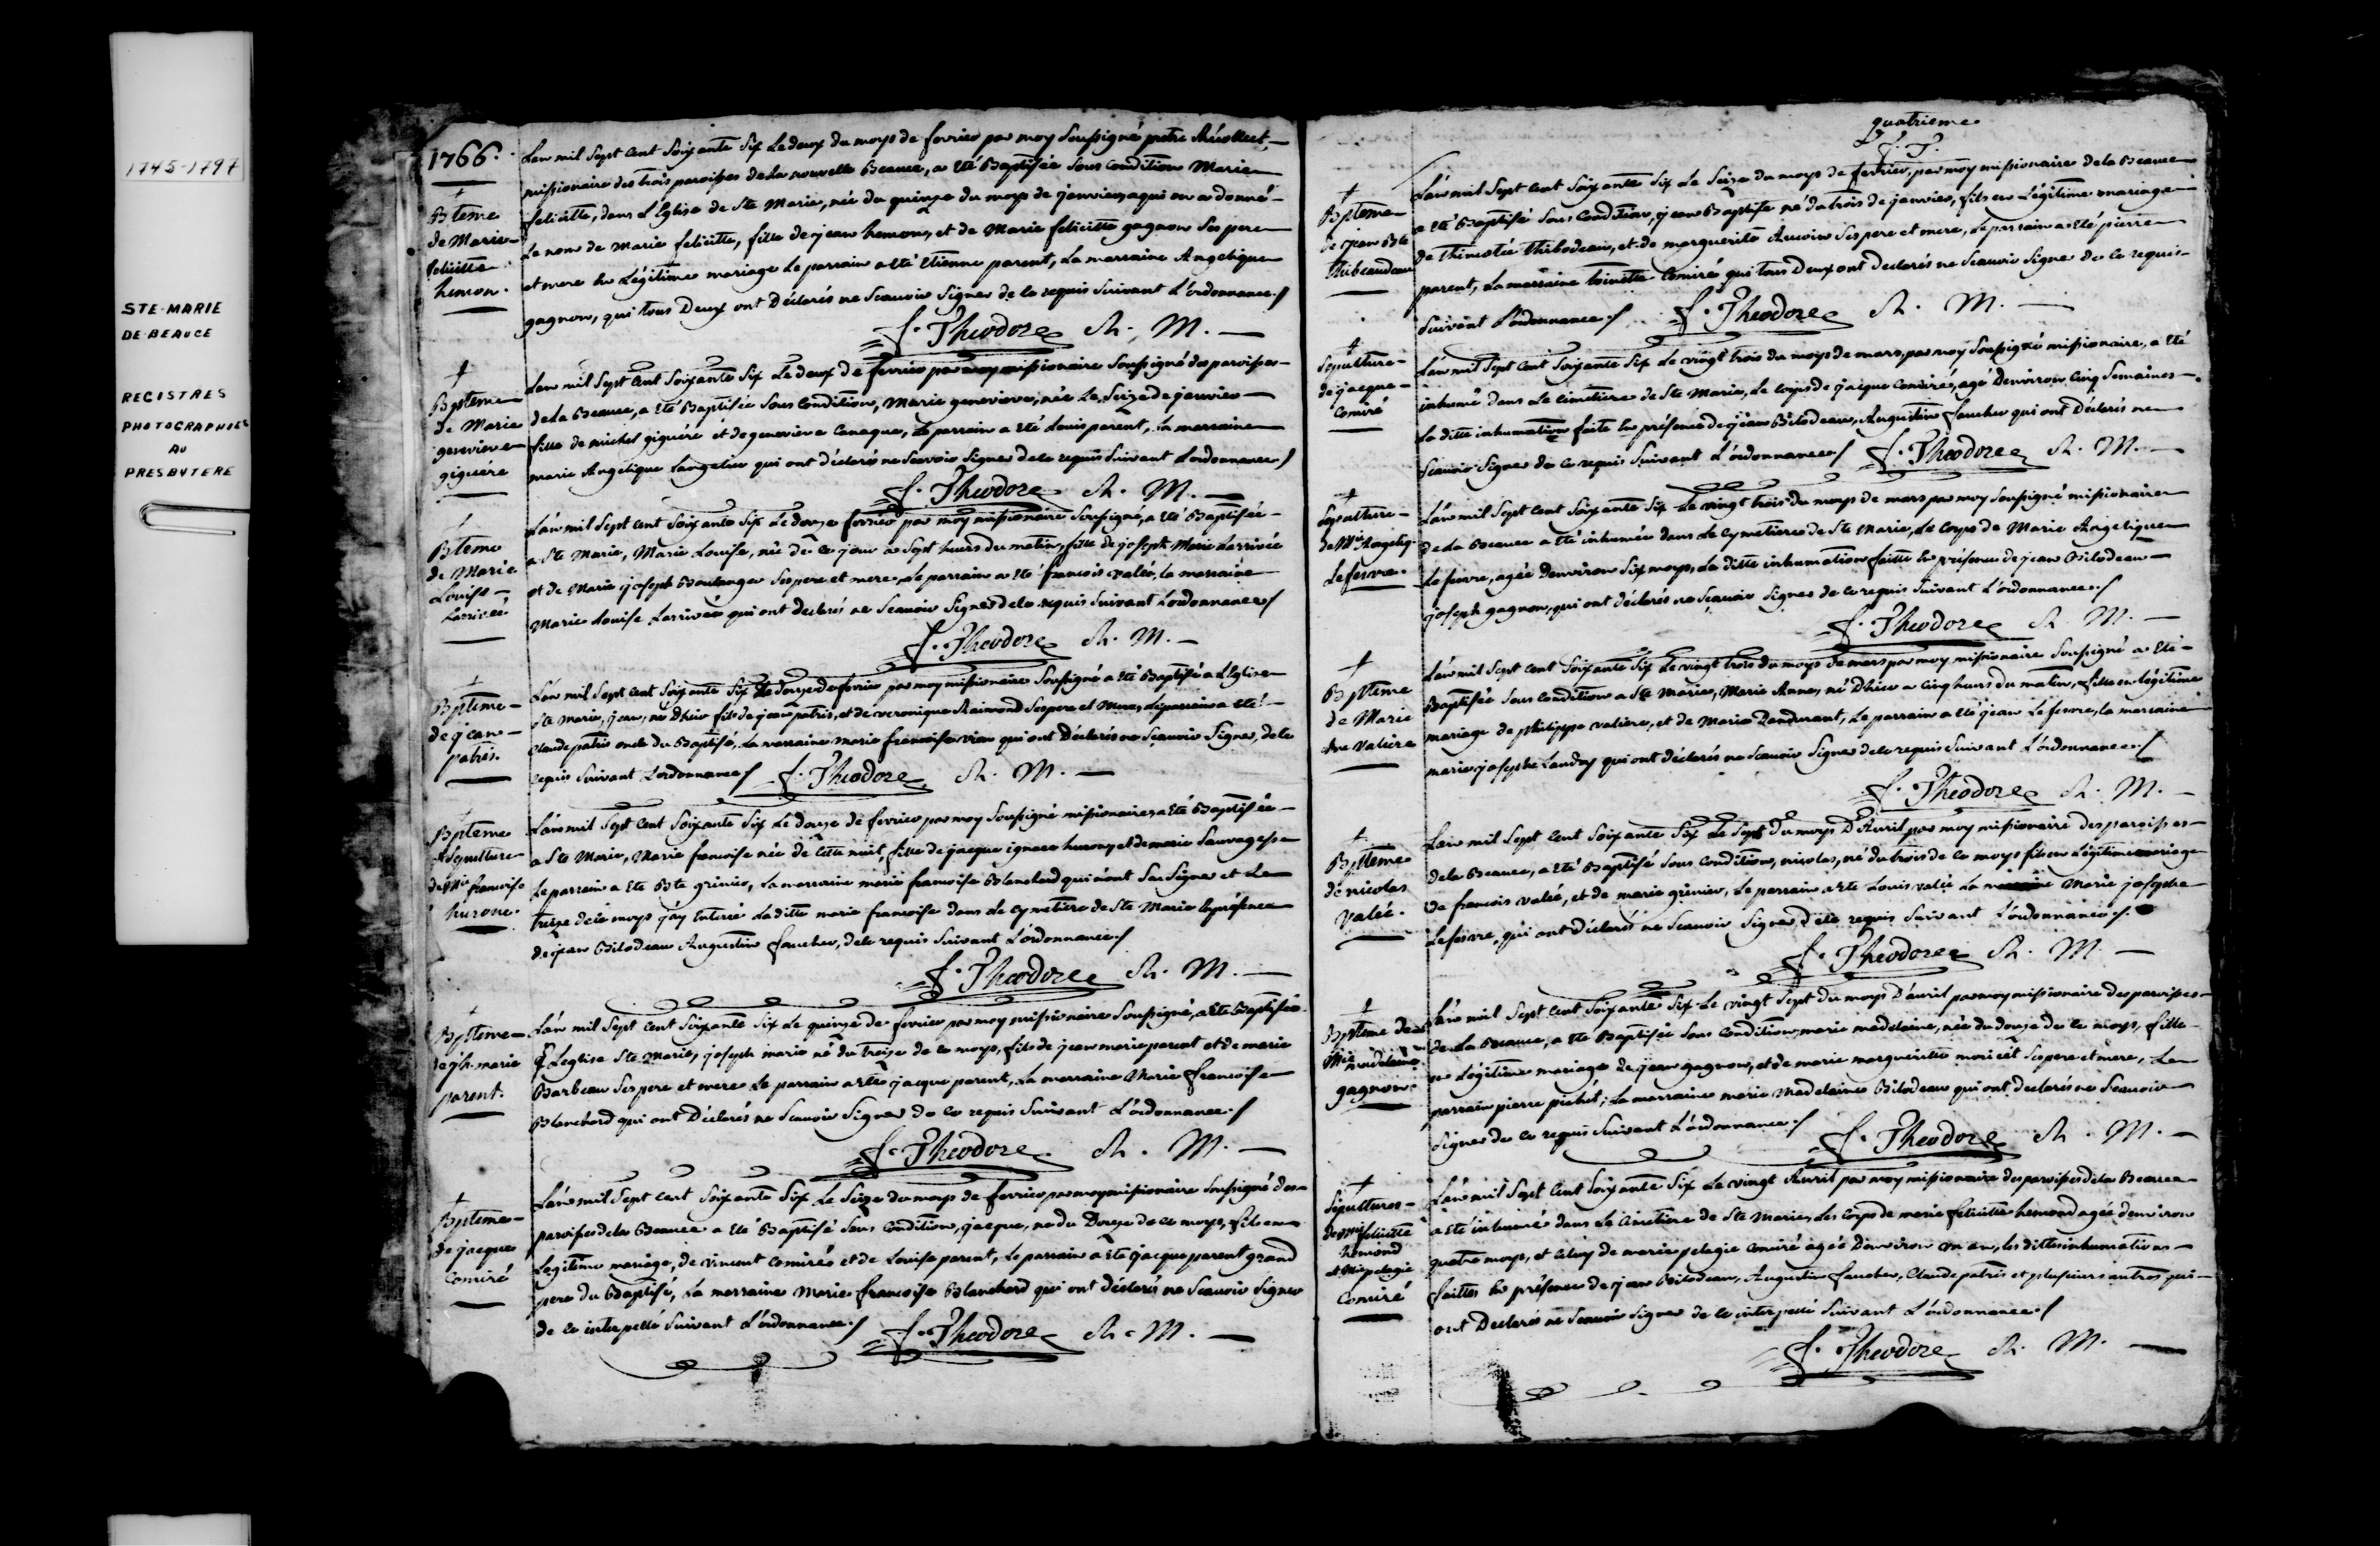 1745-1797
STE-MARIE
DE-BEAUCE
REGISTRES
PHOTOGRAPHIES
AU
PRESBYTERE
1766.
L'an mil Sept Cent Soixante Six Le deux du moys de fevrier par moy Soussigné pretre Récollect,
missionaire des trois paroisses de La nouvelle Beauce, a eté Baptisée Sous Condition Marie
felicitte, dans L'Eglise de Ste Marie, née du quinze du moys de janvier, a qui on a donné
Le nom de Marie felicitte, fille de jean hemon, et de Marie felicitte gagnon Ses pere
et mere en Légitime mariage Le parrain a eté Etienne parent, La marraine Angelique
gagnon, qui tous Deux ont Déclarés ne Scauoir Signer de ce requis Suivant L'ordonnance./
f. Theodore R. M.
Bteme
de Marie
felicitte
hemon.
L'an mil Sept Cent Soixante Six Le deux de fevrier par moy missionaire Soussigné des paroisses
de La Beauce, a eté Baptisée Sous Condition, Marie genevieve, née Le Seize de janvier
fille de michel giguére et de genevieve Canaque, Le parrain a eté Louis parent, La marraine
marie Angelique Langelier qui ont déclarés ne Scavoir Signer de ce requis Suivant L'ordonnance./
f. Theodore R. M.
Bpteme
de Marie
genevieve
giguere
L'an mil Sept Cent Soixante Six Le douze fevrier par moy missionaire Soussigné, a eté Baptisée
a Ste Marie, Marie Louise, née de ce jour a Sept heures du matin, fille de joseph Marie Larrivée
et de Marie joseph Boulanger Ses pere et mere, Le parrain a eté francois valée, La marraine
Marie Louise Larrivée qui ont declarés ne Scauoir Signer de ce requis Suivant L'ordonnance./
f. Theodore R. M.
Bteme
de Marie
Louise
Larrivée
L'an mil Sept Cent Soixante Six Le douze de fevrier par moy missionaire Soussigné a eté Baptisé a L'Eglise
Ste Marie, jean, né D'hier fils de jean patris, et de veronique Raimond Ses pere et mere, Le parrain a eté
Claude patris oncle du Baptisé, La marraine marie francoise vien qui ont Déclarés ne Scauoir Signer, de ce
requis Suivant L'ordonnance./ f. Theodore R. M.
Bpteme
de jean
patris.
L'an mil Sept Cent Soixante Six Le douze de fevrier par moy Soussigné missionaire a eté Baptisée
a Ste Marie, Marie francoise née de Cette nuit, fille de jacque ignace huron, et de marie Sauvagesse
Le parrain a eté Bte grénier, La marraine marie francoise Blanchard qui n'ont Su Signer et Le
treize de ce moys j'ay Enterré La ditte marie francoise dans Le Cymetiere de Ste Marie En présence
de jean Bilodeau Augustin faucher, de ce requis Suivant L'ordonnance./
f. Theodore R. M.
Bpteme
& Sepulture
de Mie francoise
hurone.
L'an mil Sept Cent Soixante Six Le quinze de fevrier par moy missionaire Soussigné, a eté Baptisé
L'eglise Ste Marie, joseph marie né du treize de ce moys, fils de jean marie parent et de marie
Barbeau Ses pere et mere Le parrain a eté jacque parent, La marraine Marie francoise
Blanchard qui ont Déclarés ne Scauoir Signer de ce requis Suivant L'ordonnance./
f. Theodore R. M.
Bpteme
de jph. marie
parent.
L'an mil Sept Cent Soixante Six Le Seize du moys de fevrier par moy missionaire Soussigné des
paroisses de La Beauce a eté Baptisé Sous Condition, jacque, né du Douze de ce moys, fils en
Legitime mariage, de vincent Comiré et de Louise parent, Le parrain a eté jacque parent grand
pere du Baptisé, La marraine Marie francoise Blanchard qui ont déclarés ne Scauoir Signer
de ce interpellé Suivant L'ordonnance./ f. Theodore R. M.
Bpteme
de jacque
Comiré
quatrieme
f. T.
L'an mil Sept Cent Soixante Six Le Seize du moys de fevrier, par moy missionaire de La Beauce
a eté Baptisé Sous Condition, jean Baptiste né du trois de janvier, fils en Légitime mariage
de thimotée thibodeau, et de marguerite Ses pere et mere, Le parrain a eté pierre
parent, La marraine toinette Comiré qui tous Deux ont Declarés ne Scauoir Signer de ce requis
Suivant L'ordonnance./ f. Theodore R. M.
Bpteme
de jean Bte
thibeaudeau
L'an mil Sept Cent Soixante Six Le vingt trois du moys de mars, par moy Soussigné missionaire, a eté
inhumé dans Le Cimetiere de Ste Marie, Le corps de jacque Comiré, agé D'environ Cinq Semaines
La ditte inhumation faite En présence de jean Bilodeau, Augustin faucher qui ont Déclarés ne
Scauoir Signer de ce requis Suivant L'ordonnance./ f. Theodore R. M.
Sepulture
de jacque
Comiré
L'an mil Sept Cent Soixante Six Le vingt trois du moys de mars par moy Soussigné missionaire
de La Beauce a eté inhumée dans Le Cymetiere de Ste Marie, Le Corps de Marie Angelique
Lefevre, agée D'environ Six moys, La ditte inhumation faitte En présence de jean Bilodeau
joseph gagnon, qui ont déclarés ne Scauoir Signer de ce requis Suivant L'ordonnance./
f. Theodore R. M.
Sepulture
de Mie Angeliq.
Lefevre.
L'an mil Sept Cent Soixante Six Le vingt trois du moys de mars par moy missionaire Soussigné a eté
Baptisée Sous Condition a Ste Marie, Marie Anne, né D'hier a Cinq heures du matin, fille en légitime
mariage de philippe valiere, et de Marie Dandurant, Le parrain a eté jean Lefevre, La marraine
marie josephe Landry qui ont déclarés ne Scauoir Signer de ce requis Suivant L'ordonnance./
f. Theodore R. M.
Bpteme
de Marie
Ane Valiere
L'an mil Sept Cent Soixante Six Le Sept du moys D'Avril par moy missionaire des paroisses
de La Beauce, a eté Baptisé Sous Condition, nicolas, né du trois de ce moys fils en Légitime mariage
de francois valée, et de marie grénier, Le parrain a eté Louis valée La marraine Marie josephe
Lefevre, qui ont Déclarés ne Scauoir Signer, de ce requis Suivant L'ordonnance./
f. Theodore R. M.
Bpteme
de nicolas
Valée.
L'an mil Sept Cent Soixante Six Le vingt Sept du moys D'avril par moy missionaire des paroisses
de La Beauce, a eté Baptisée Sous Condition, marie madelaine, née du douze de ce moys, fille
en Légitime mariage de jean gagnon, et de marie marguerite Ses pere et mere, Le
parrain pierre, La marraine marie Madelaine Bilodeau qui ont declarés ne Scauoir
Signer de ce requis Suivant L'ordonnance./ f. Theodore R. M.
Bpteme de
Mie madelaine
gagnon.
L'an mil Sept Cent Soixante Six Le vingt Avril par moy missionaire des paroisses de La Beauce
a eté inhumé dans Le Cimetiere de Ste Marie, Les Corps de marie felicitte hemond agée denviron
quatre moys, et Celuy de marie pelagie Comiré agée D'environ un an, Les dittes inhumations
faittes En présence de jean Bilodeau, Augustin faucher, Claude patris et plusieurs autres qui
ont Declarés ne Scauoir Signer de ce interpellé Suivant L'ordonnance./
f. Theodore R. M.
Sépultures
de Mie felicitte
hemond
et Mie pelagie
Comiré